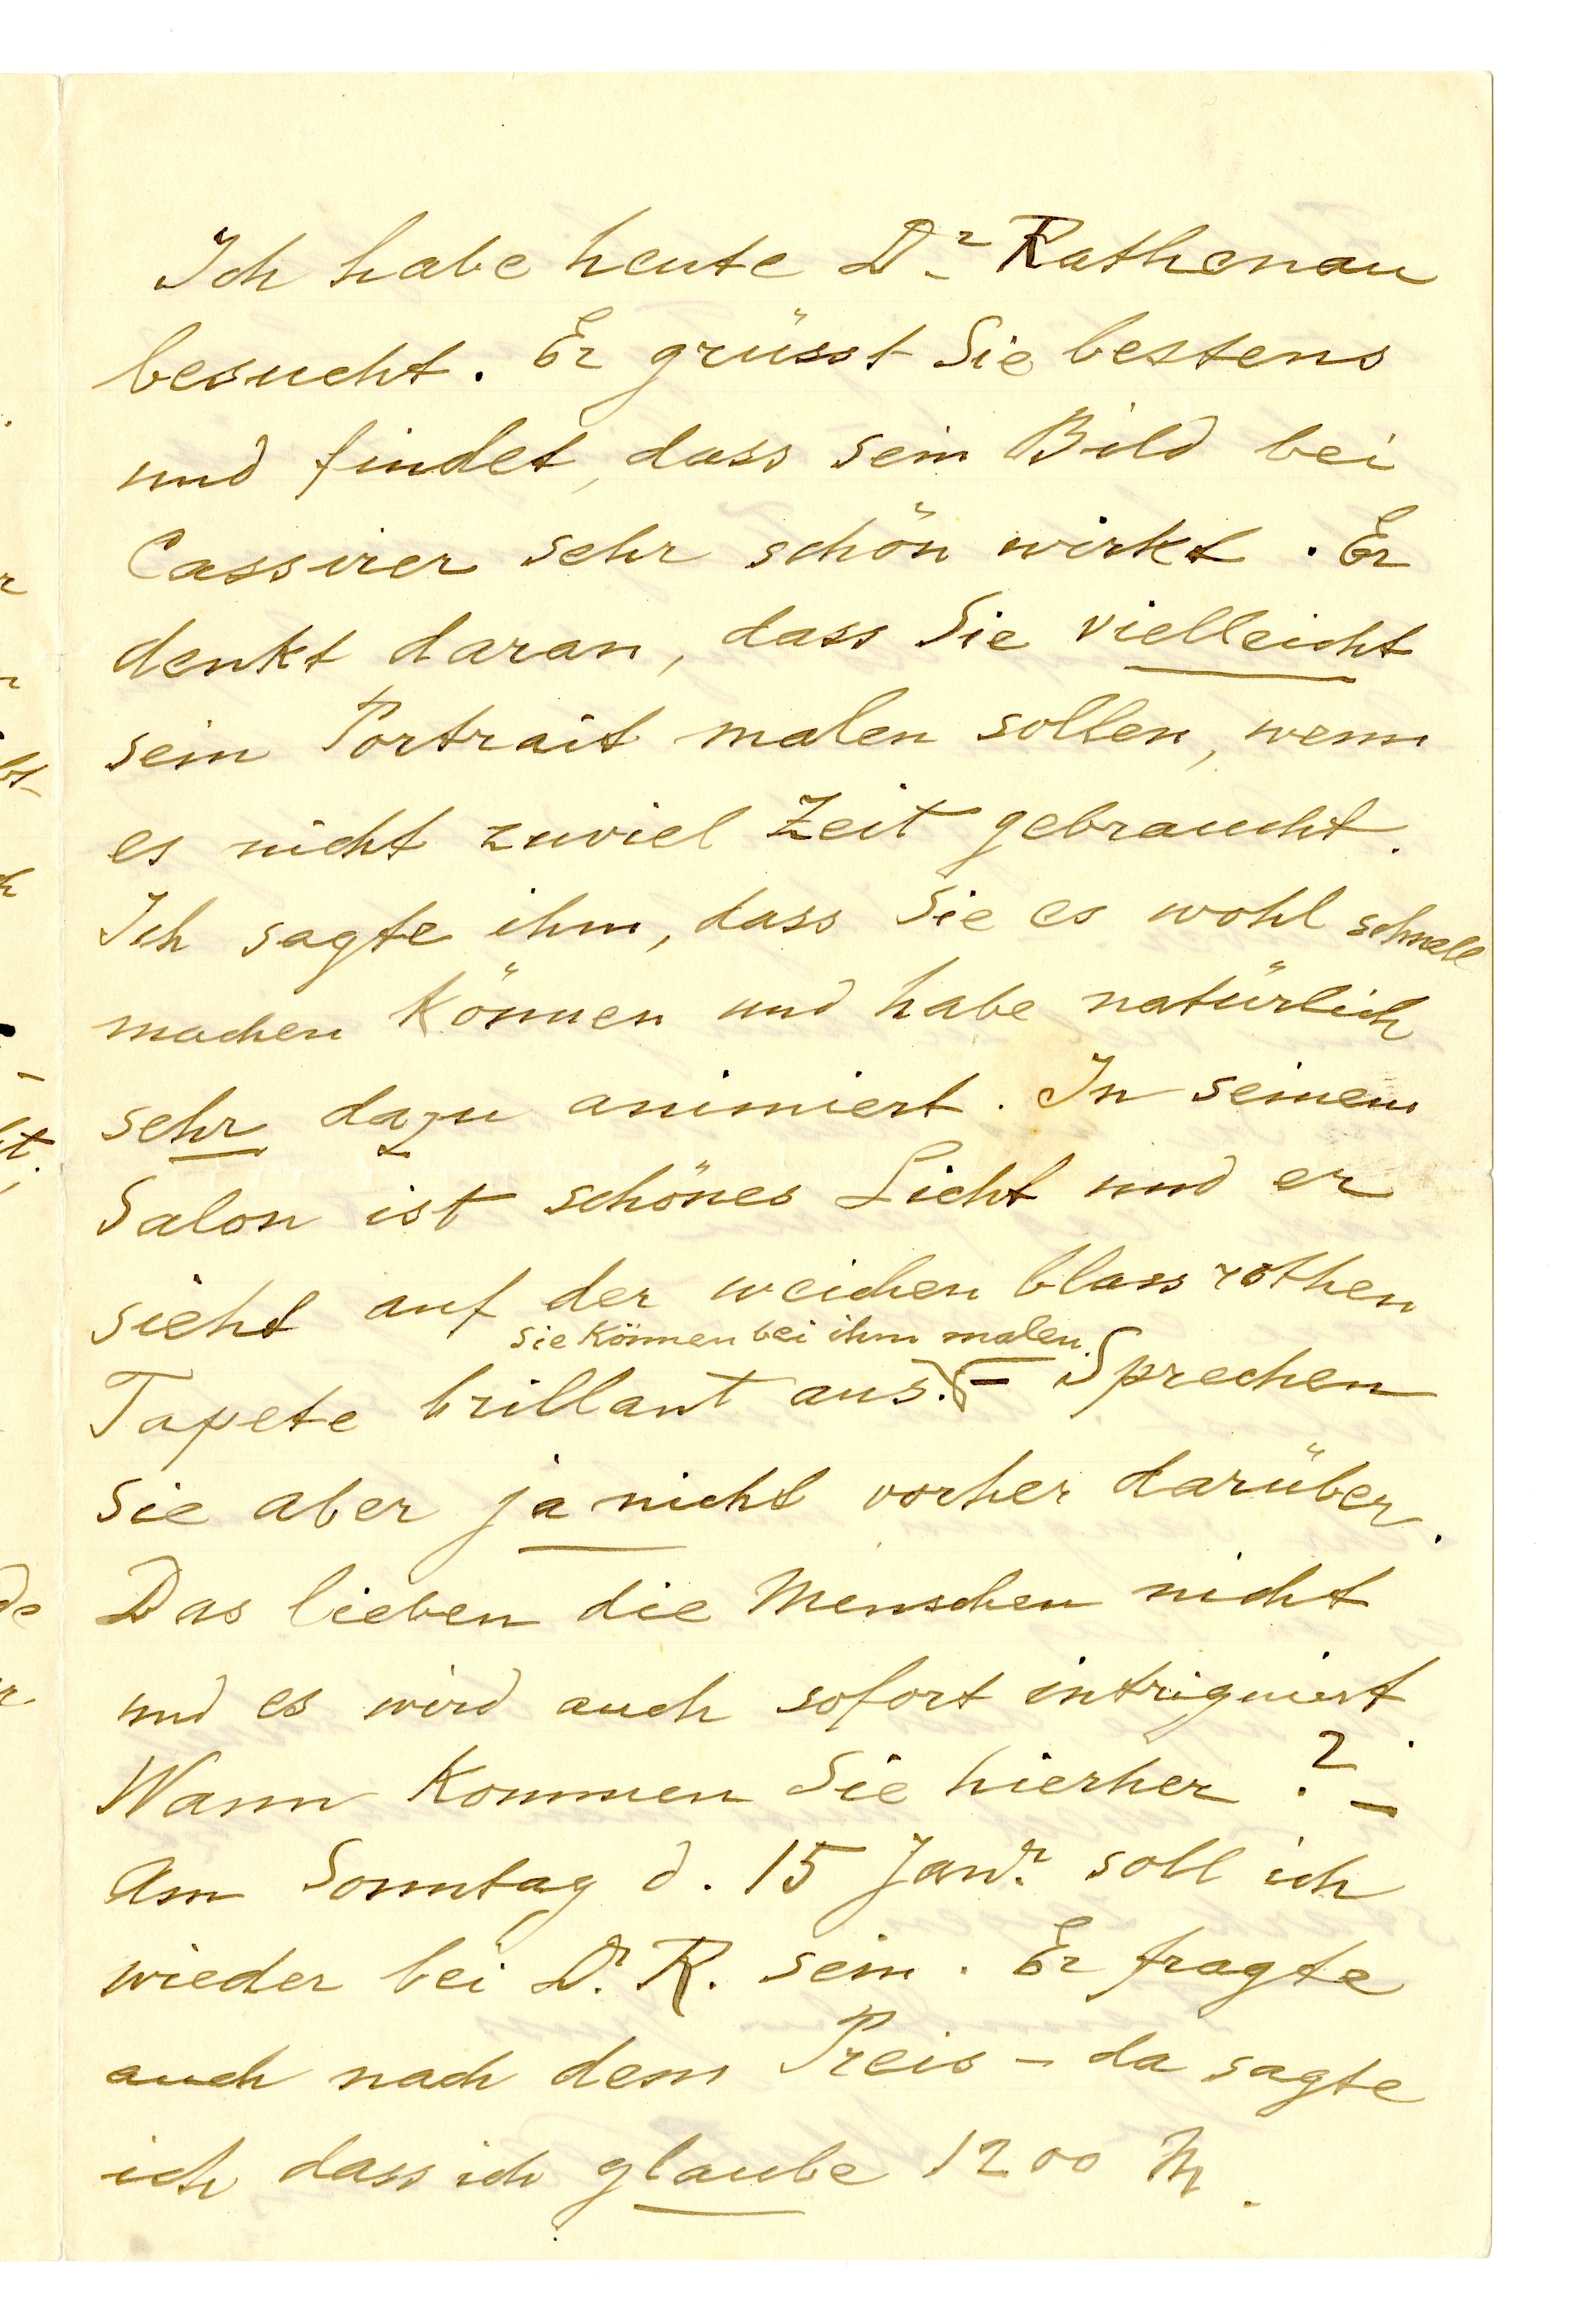 Ich habe heute Dr Rathenau
besucht. Er grüsst Sie bestens
und findet, dass sein Bild bei
Cassirer sehr schön wirkt. Er
denkt daran, dass Sie vielleicht
sein Portrait malen sollen, wenn
es nicht zuviel Zeit gebraucht.
Ich sagte ihm, dass Sie es wohl schnell
machen können und habe natürlich
sehr dazu animiert. In seinem
Salon ist schönes Licht und er
sieht auf der weichen blass rothen
Sie können bei ihm malen.
Tapete brillant aus. – Sprechen
Sie aber ja nicht vorher darüber.
Das lieben die Menschen nicht
und es wird auch sofort intriguiert.
Wann kommen Sie hierher? –
Am Sonntag d. 15 Janr. soll ich
wieder bei Dr. R. sein. Er fragte
auch nach dem Preis – da sagte
ich dass ich glaube 1200 M.